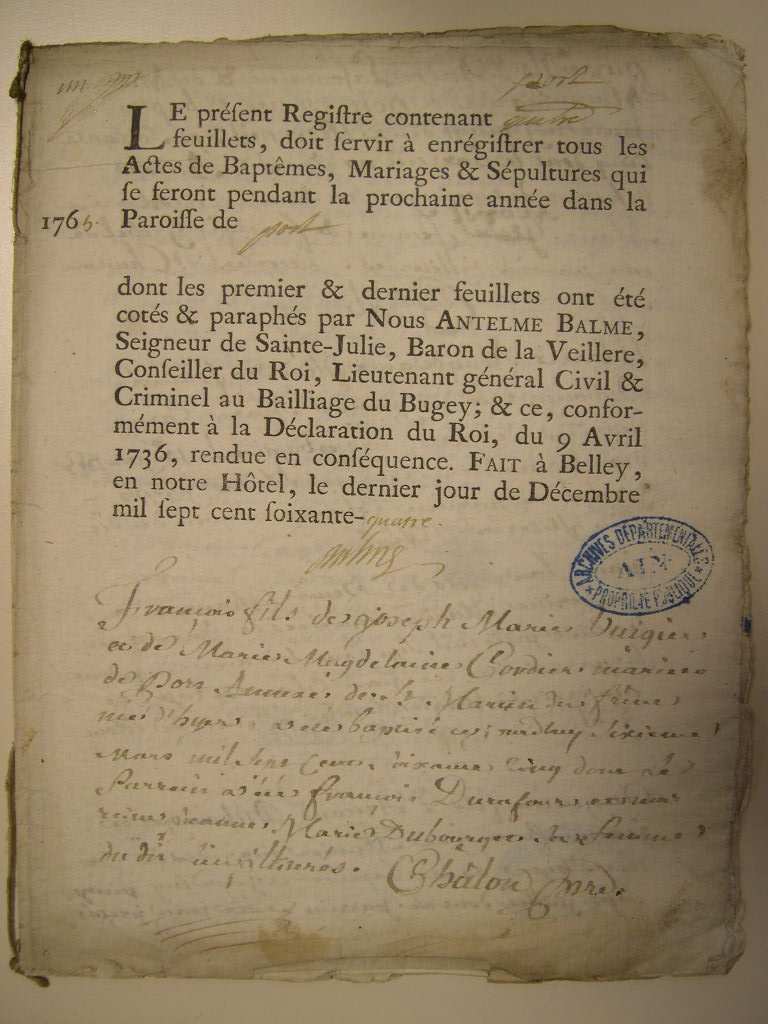 port
LE préſent Regiſtre contenant quatre
feuillets, doit ſervir à enrégiſtrer tous les
Actes de Baptêmes, Mariages & Sépultures qui
ſe feront pendant la prochaine année dans la
1765. Paroiſſe de port
dont les premier & dernier feuillets ont été
cotés & paraphés par Nous ANTELME BALME,
Seigneur de Sainte-Julie, Baron de la Veillere,
Conſeiller du Roi, Lieutenant général Civil &
Criminel au Bailliage du Bugey; & ce, confor-
mément à la Déclaration du Roi, du 9 Avril
1736, rendue en conſéquence. FAIT à Belley,
en notre Hôtel, le dernier jour de Décembre
mil ſept cent ſoixante-quatre.
ARCHIVES DEPARTEMENTALES
AIN
PROPRIETE PUBLIQUE
françois fils de joseph Marie
et de Marie Magdelaine Cordier
de Port
né d'hyer a été baptisé
Mars mil sept cent soixante cinq dont le
Parrein a été françois Durafour
Marie sa femme
du dit
Châlon Curé.